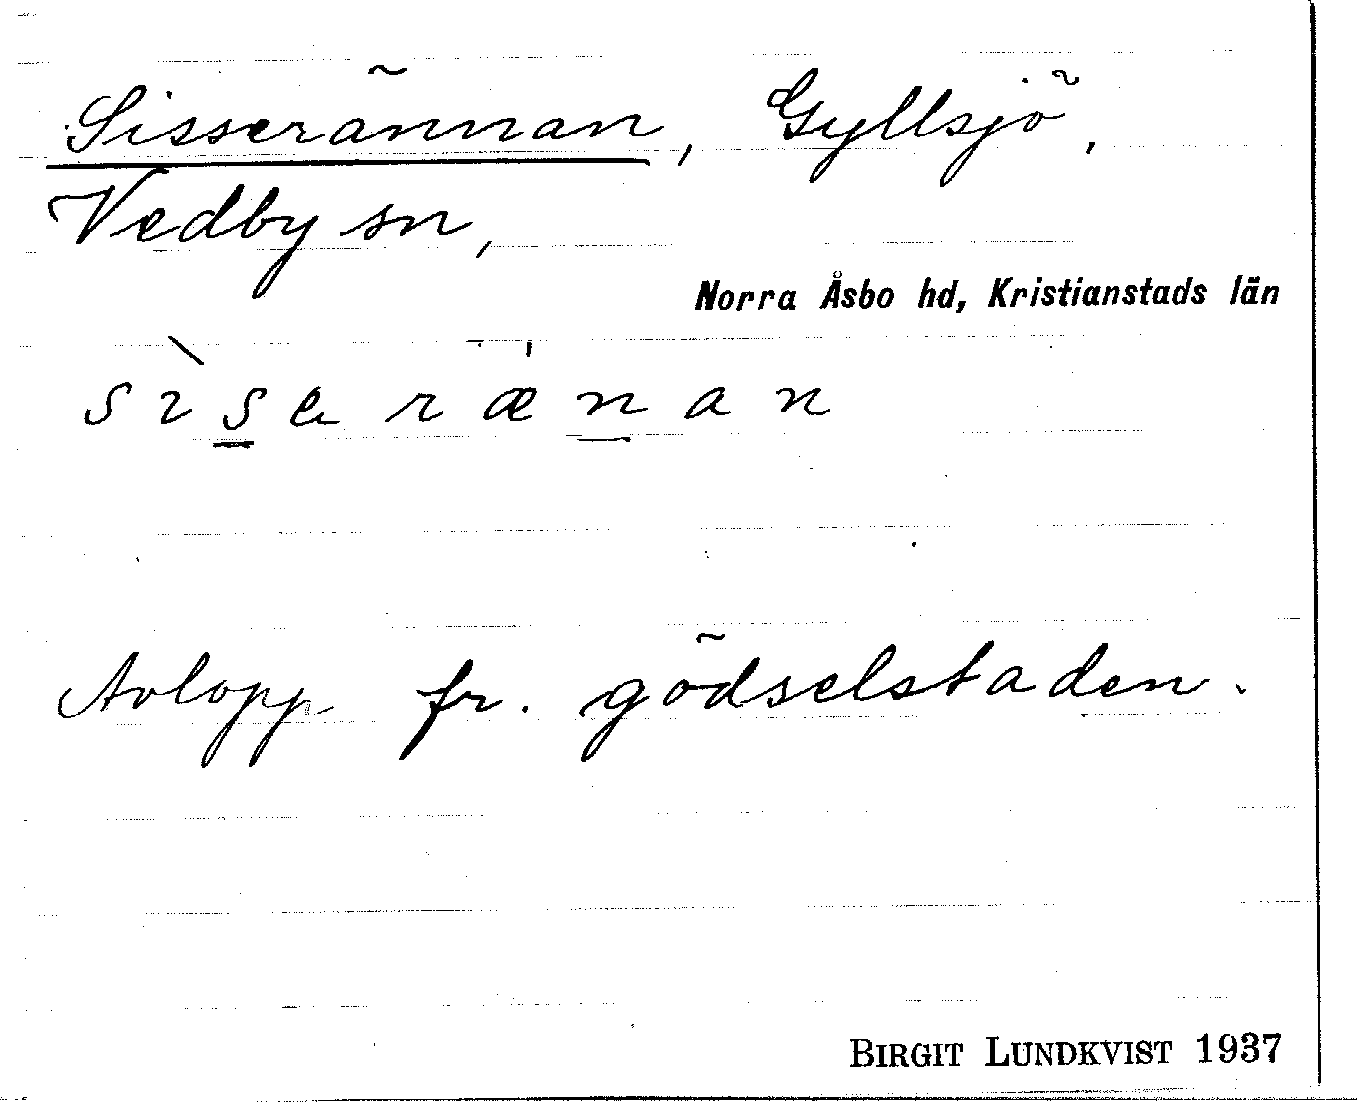 Sisserännan, Gyllsjö,
Vedby sn,
Norra Åsbo hd, Kristianstads län
sìserænan
Avlopp fr. gödselstaden.
BIRGIT LUNDKVIST 1937